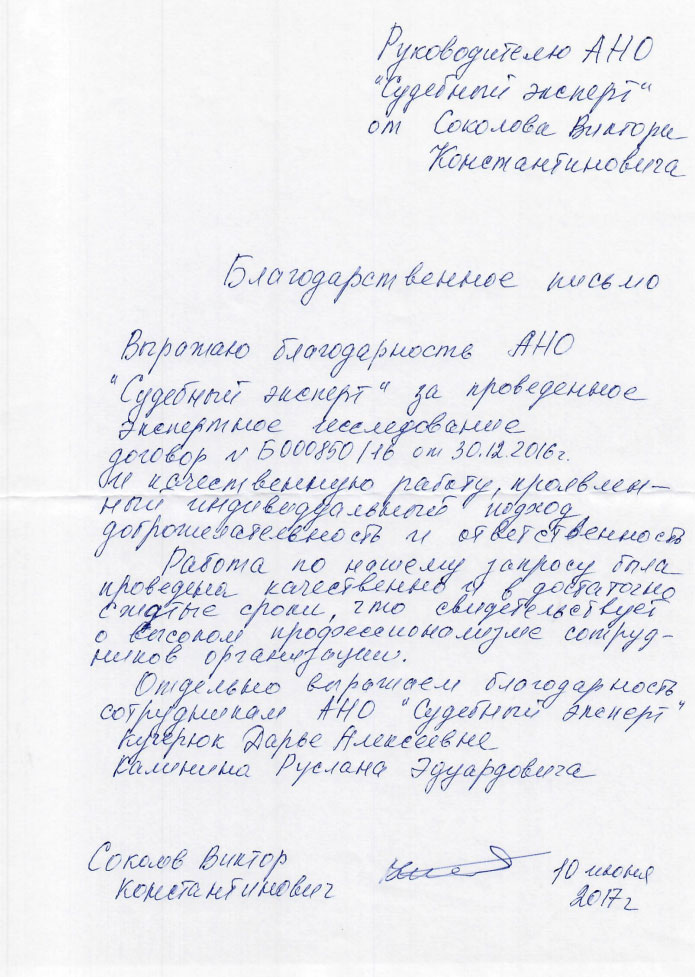 Руководителю АНО
"Судебный эксперт"
от Соколова Виктора
Константиновича
Благодарственное письмо
Выражаю благодарность АНО
"Судебный эксперт" за проведенное
экспертное исследование
договор № Б000850/16 от 30.12.2016г.
и качественную работу, проявлен-
ный индивидуальный подход,
доброжелательность и ответственность
Работа по нашему запросу была
проведена качественно и в достаточно
сжатые сроки, что свидетельствует
о высоком профессионализме сотруд-
ников организации.
Отдельно выражаем благодарность
сотрудникам АНО "Судебный эксперт"
Кучерюк Дарье Алексеевне
Калинина Руслана Эдуардовича
Соколов Виктор
Константинович
10 июня
2017г